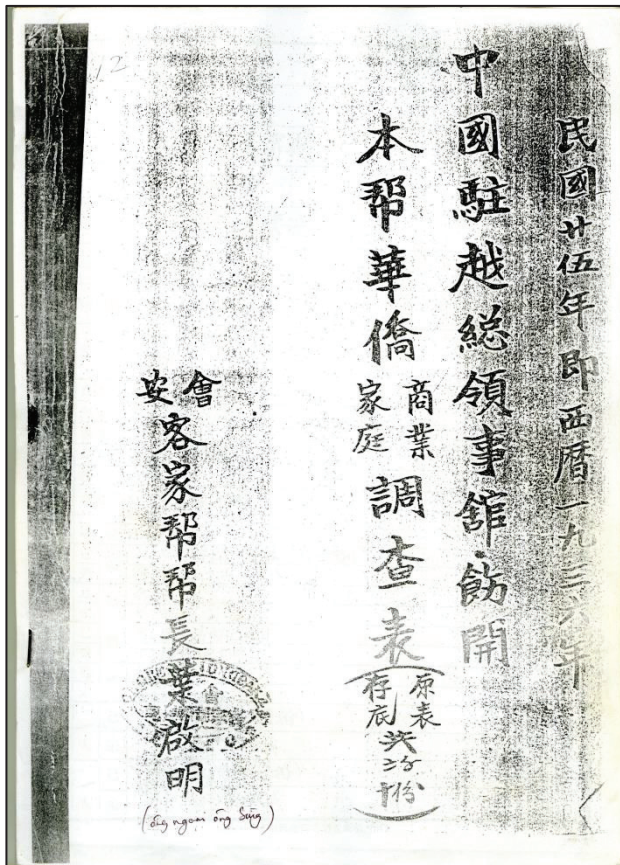 民國廿伍年即西曆一九三六年
中國駐越総領事舘飭開
本帮華僑商業家庭調查表(原表存底共二十份)
會安客家帮帮長葉啟明
12
(ông ngoại ông Sùng)